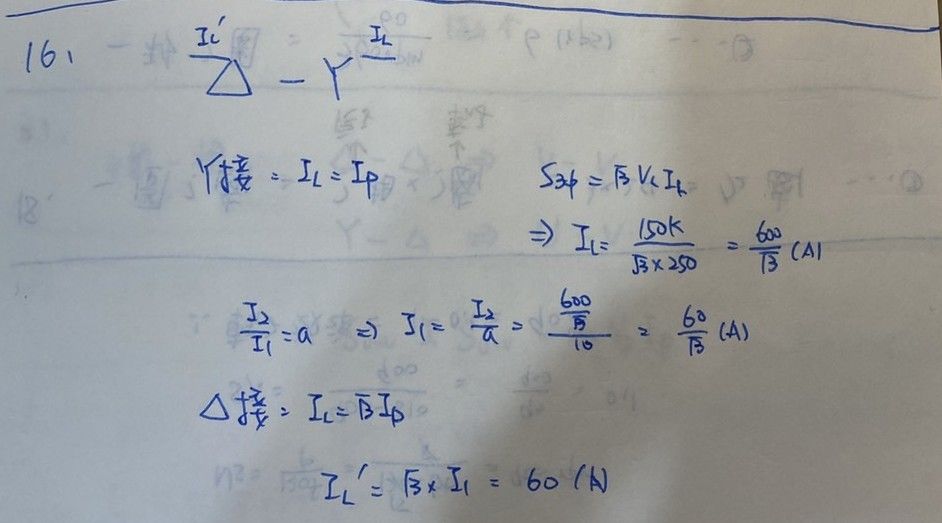 16.
I_L' I_L
△ - Y
Y接 = I_L = I_P
S3ϕ = √3 V_L I_L
⇒ I_L = 150K / (√3 × 250) = 600/√3 (A)
I_2/I_1 = a ⇒ I_1 = I_2/a = (600/√3)/10 = 60/√3 (A)
△接 = I_L = √3 I_P
I_L' = √3 × I_1 = 60 (A)